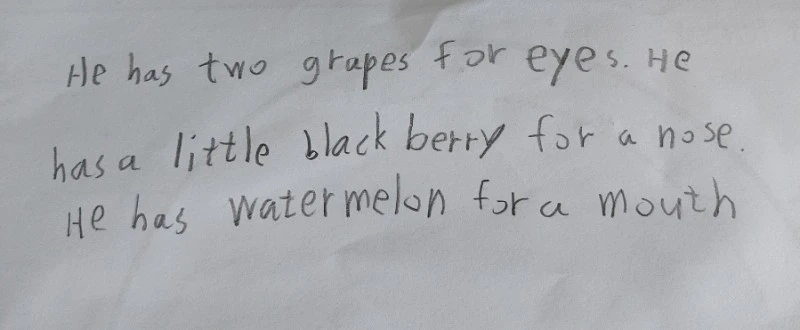 He has two grapes for eyes. He
has a little black berry for a nose.
He has watermelon for a mouth